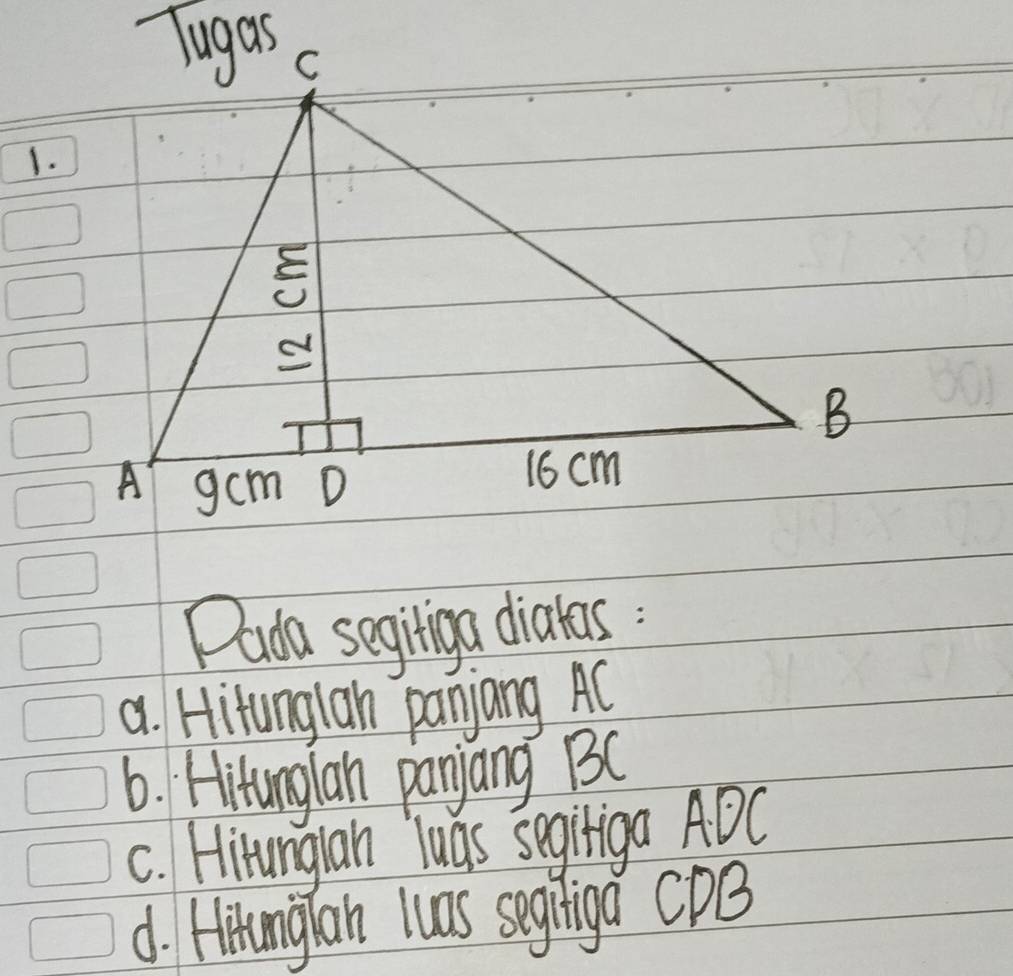 Tugas
C
1.
12 cm
B
A 9cm D 16 cm
Pada segitiga diatas :
a. Hitunglah panjang AC
b. Hitunglah panjang BC
c. Hitunglah luas segitiga ADC
d. Hitunglah luas segitiga CDB